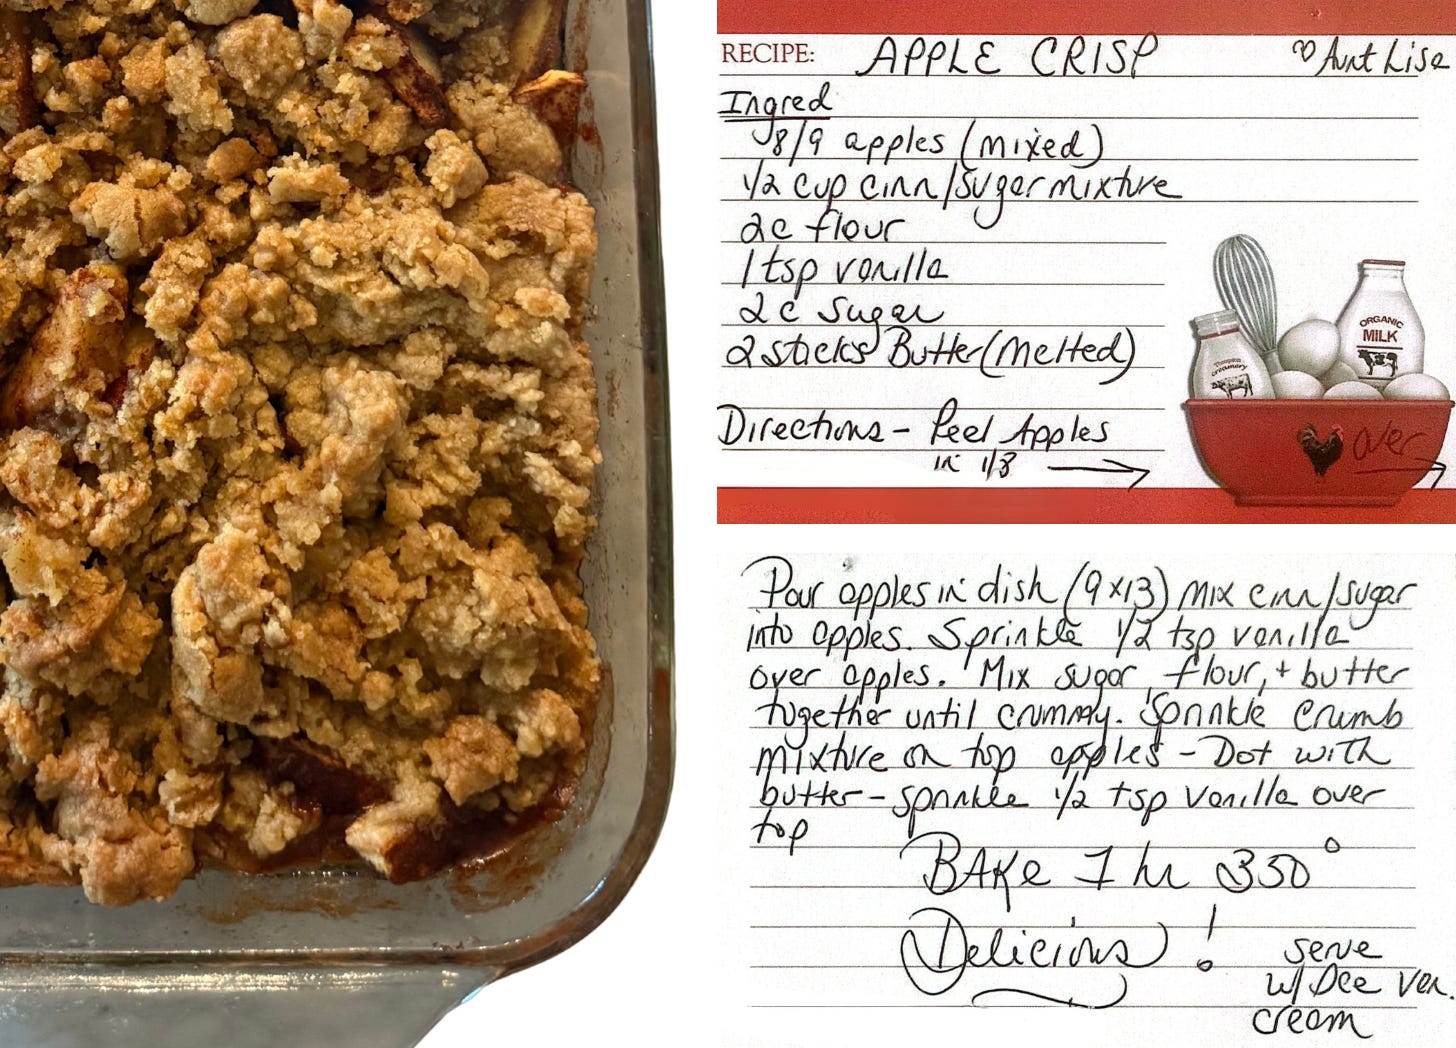 RECIPE: APPLE CRISP ♡ Aunt Lisa
Ingred
8/9 apples (mixed)
1/2 cup cinn/sugar mixture
2c flour
1 tsp vanilla
2 c sugar
2 sticks Butter (melted)
ORGANIC
MILK
Creamery
Directions - Peel Apples
in 1/8
over
Pour apples in dish (9x13) Mix cinn/sugar
into apples. Sprinkle 1/2 tsp vanilla
over apples. Mix sugar, flour, + butter
together until crummy. Sprinkle crumb
mixture on top apples - Dot with
butter - sprinkle 1/2 tsp vanilla over
top
BAKE 1 hr 350°
Delicious!
serve
w/ Van.
cream